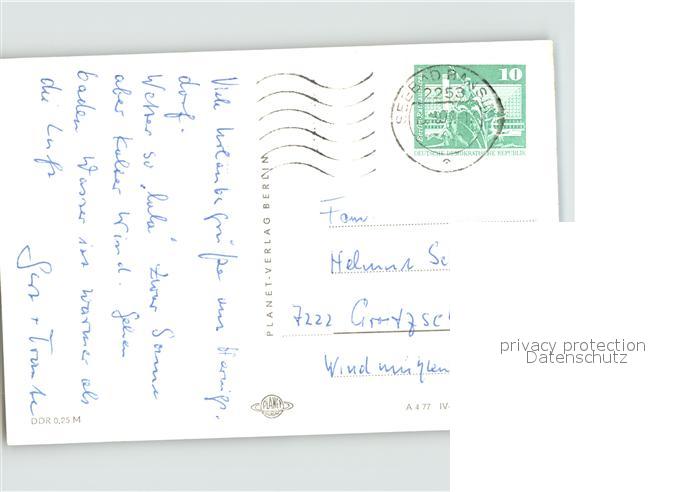 Viele Urlaubsgrüße aus Herings-
dorf.
Wetter so "lala" zwar Sonne
aber kalter Wind. Gehen
baden Wasser ist wärmer als
die Luft
Gert +
PLANET-VERLAG BERLIN
10
SEEBAD BANSIN
2253
DEUTSCHE DEMOKRATISCHE REPUBLIK
Fam
Helmut Sc
7222
Windmühlen
privacy protection
Datenschutz
PLANET
A 4 77 IV-
DDR 0,25 M